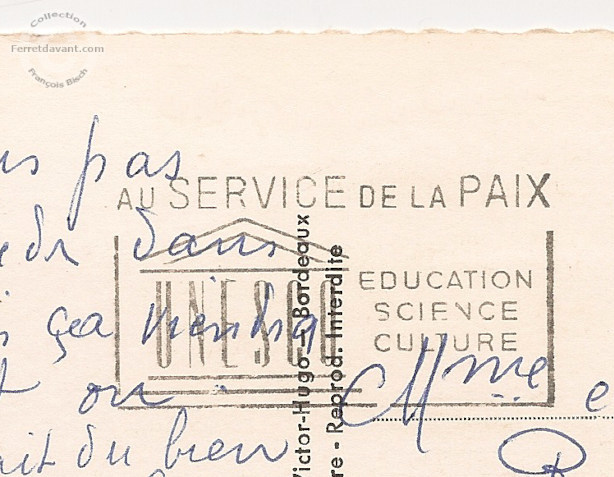 Collection
Ferretdavant.com
François Bisch
pas
AU SERVICE DE LA PAIX
dans
UNESCO
EDUCATION
SCIENCE
CULTURE
ça viendra
on
Mme
du bien
Victor-Hugo - Bordeaux
re - Reprod. Interdite